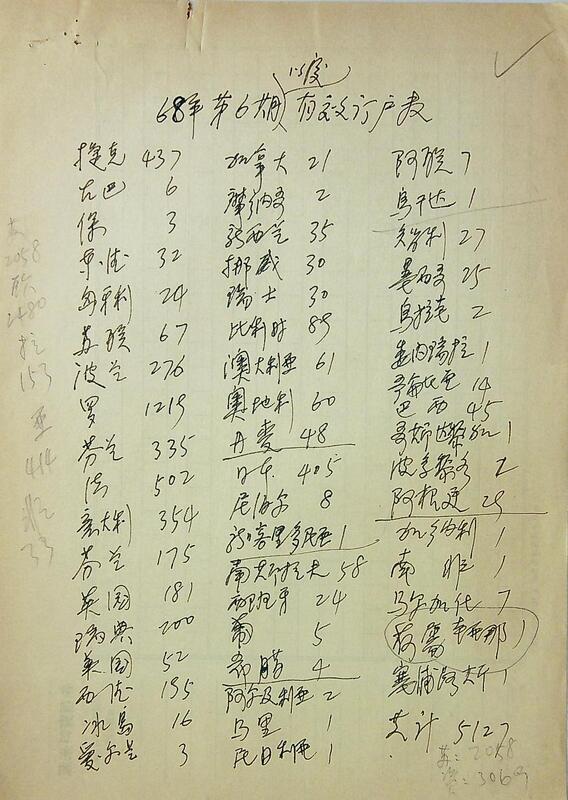 以度
68年第6期有效订户表
捷克 437
古巴 6
保 3
东德 32
匈牙利 24
苏联 67
波兰 276
罗 1219
芬兰 335
法 502
意大利 354
芬兰 175
英国 181
瑞典 200
美国 52
西德 195
冰岛 16
爱尔兰 3
加拿大 21
摩纳哥 2
新西兰 35
挪威 30
瑞士 30
比利时 89
澳大利亚 61
奥地利 60
丹麦 48
日本 405
尼泊尔 8
新喀里多尼亚 1
南斯拉夫 58
西班牙 24
葡 5
希腊 4
阿尔及利亚 2
马里 1
尼日利亚 1
阿联 7
乌干达 1
智利 27
墨西哥 25
乌拉圭 2
委内瑞拉 1
哥伦比亚 14
巴西 45
哥斯达黎加 1
波多黎各 2
阿根廷 29
加那利 1
南非 1
马尔加什 7
1
塞浦路斯 1
共计 5127
苏:2058
资:3069
苏
2058
欧
2480
拉
153
亚
414
非
33